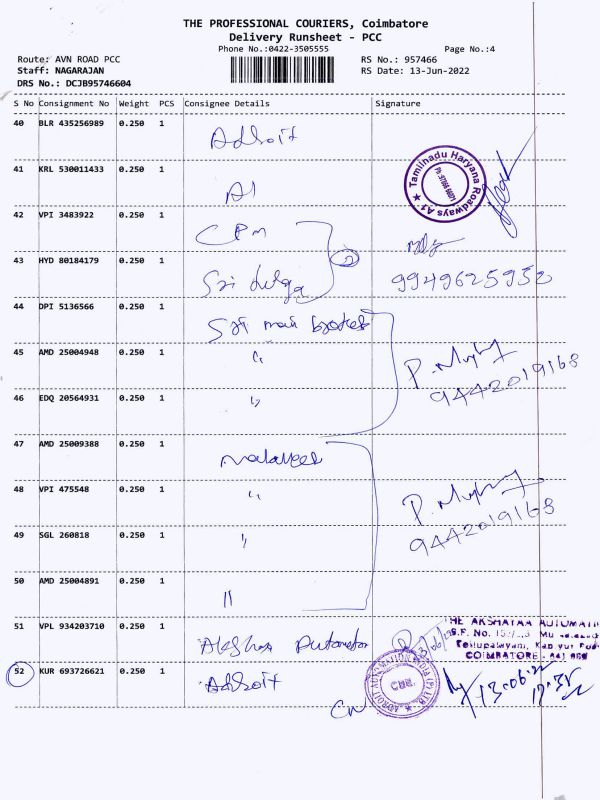 THE PROFESSIONAL COURIERS, Coimbatore
Delivery Runsheet - PCC
Phone No.:0422-3505555 Page No.:4
Route: AVN ROAD PCC RS No.: 957466
Staff: NAGARAJAN RS Date: 13-Jun-2022
DRS No.: DCJB95746604
S No Consignment No Weight PCS Consignee Details Signature
40 BLR 435256989 0.250 1 Adroit
41 KRL 530011433 0.250 1 A1 Tamilnadu Haryana Roadways A1
42 VPI 3483922 0.250 1 CPM
43 HYD 80184179 0.250 1 Sri durga 2 9949625952
44 DPI 5136566 0.250 1 Sri
45 AMD 25004948 0.250 1 " P. 9442019168
46 EDQ 20564931 0.250 1 "
47 AMD 25009388 0.250 1
48 VPI 475548 0.250 1 " P.
49 SGL 260818 0.250 1 " 9442019168
50 AMD 25004891 0.250 1 "
51 VPL 934203710 0.250 1 THE AKSHAYAA AUTOMATI
S.F. No.
COIMBATORE -
52 KUR 693726621 0.250 1 Adroit 13.06.22